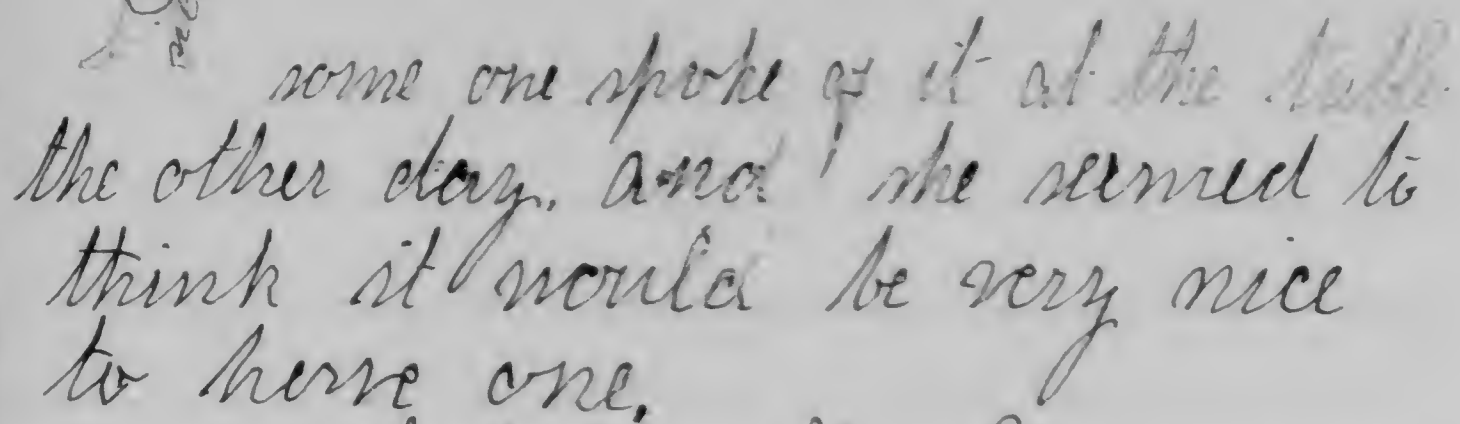 some one spoke of it at the
the other day, and she seemed to
think it would be very nice
to have one.